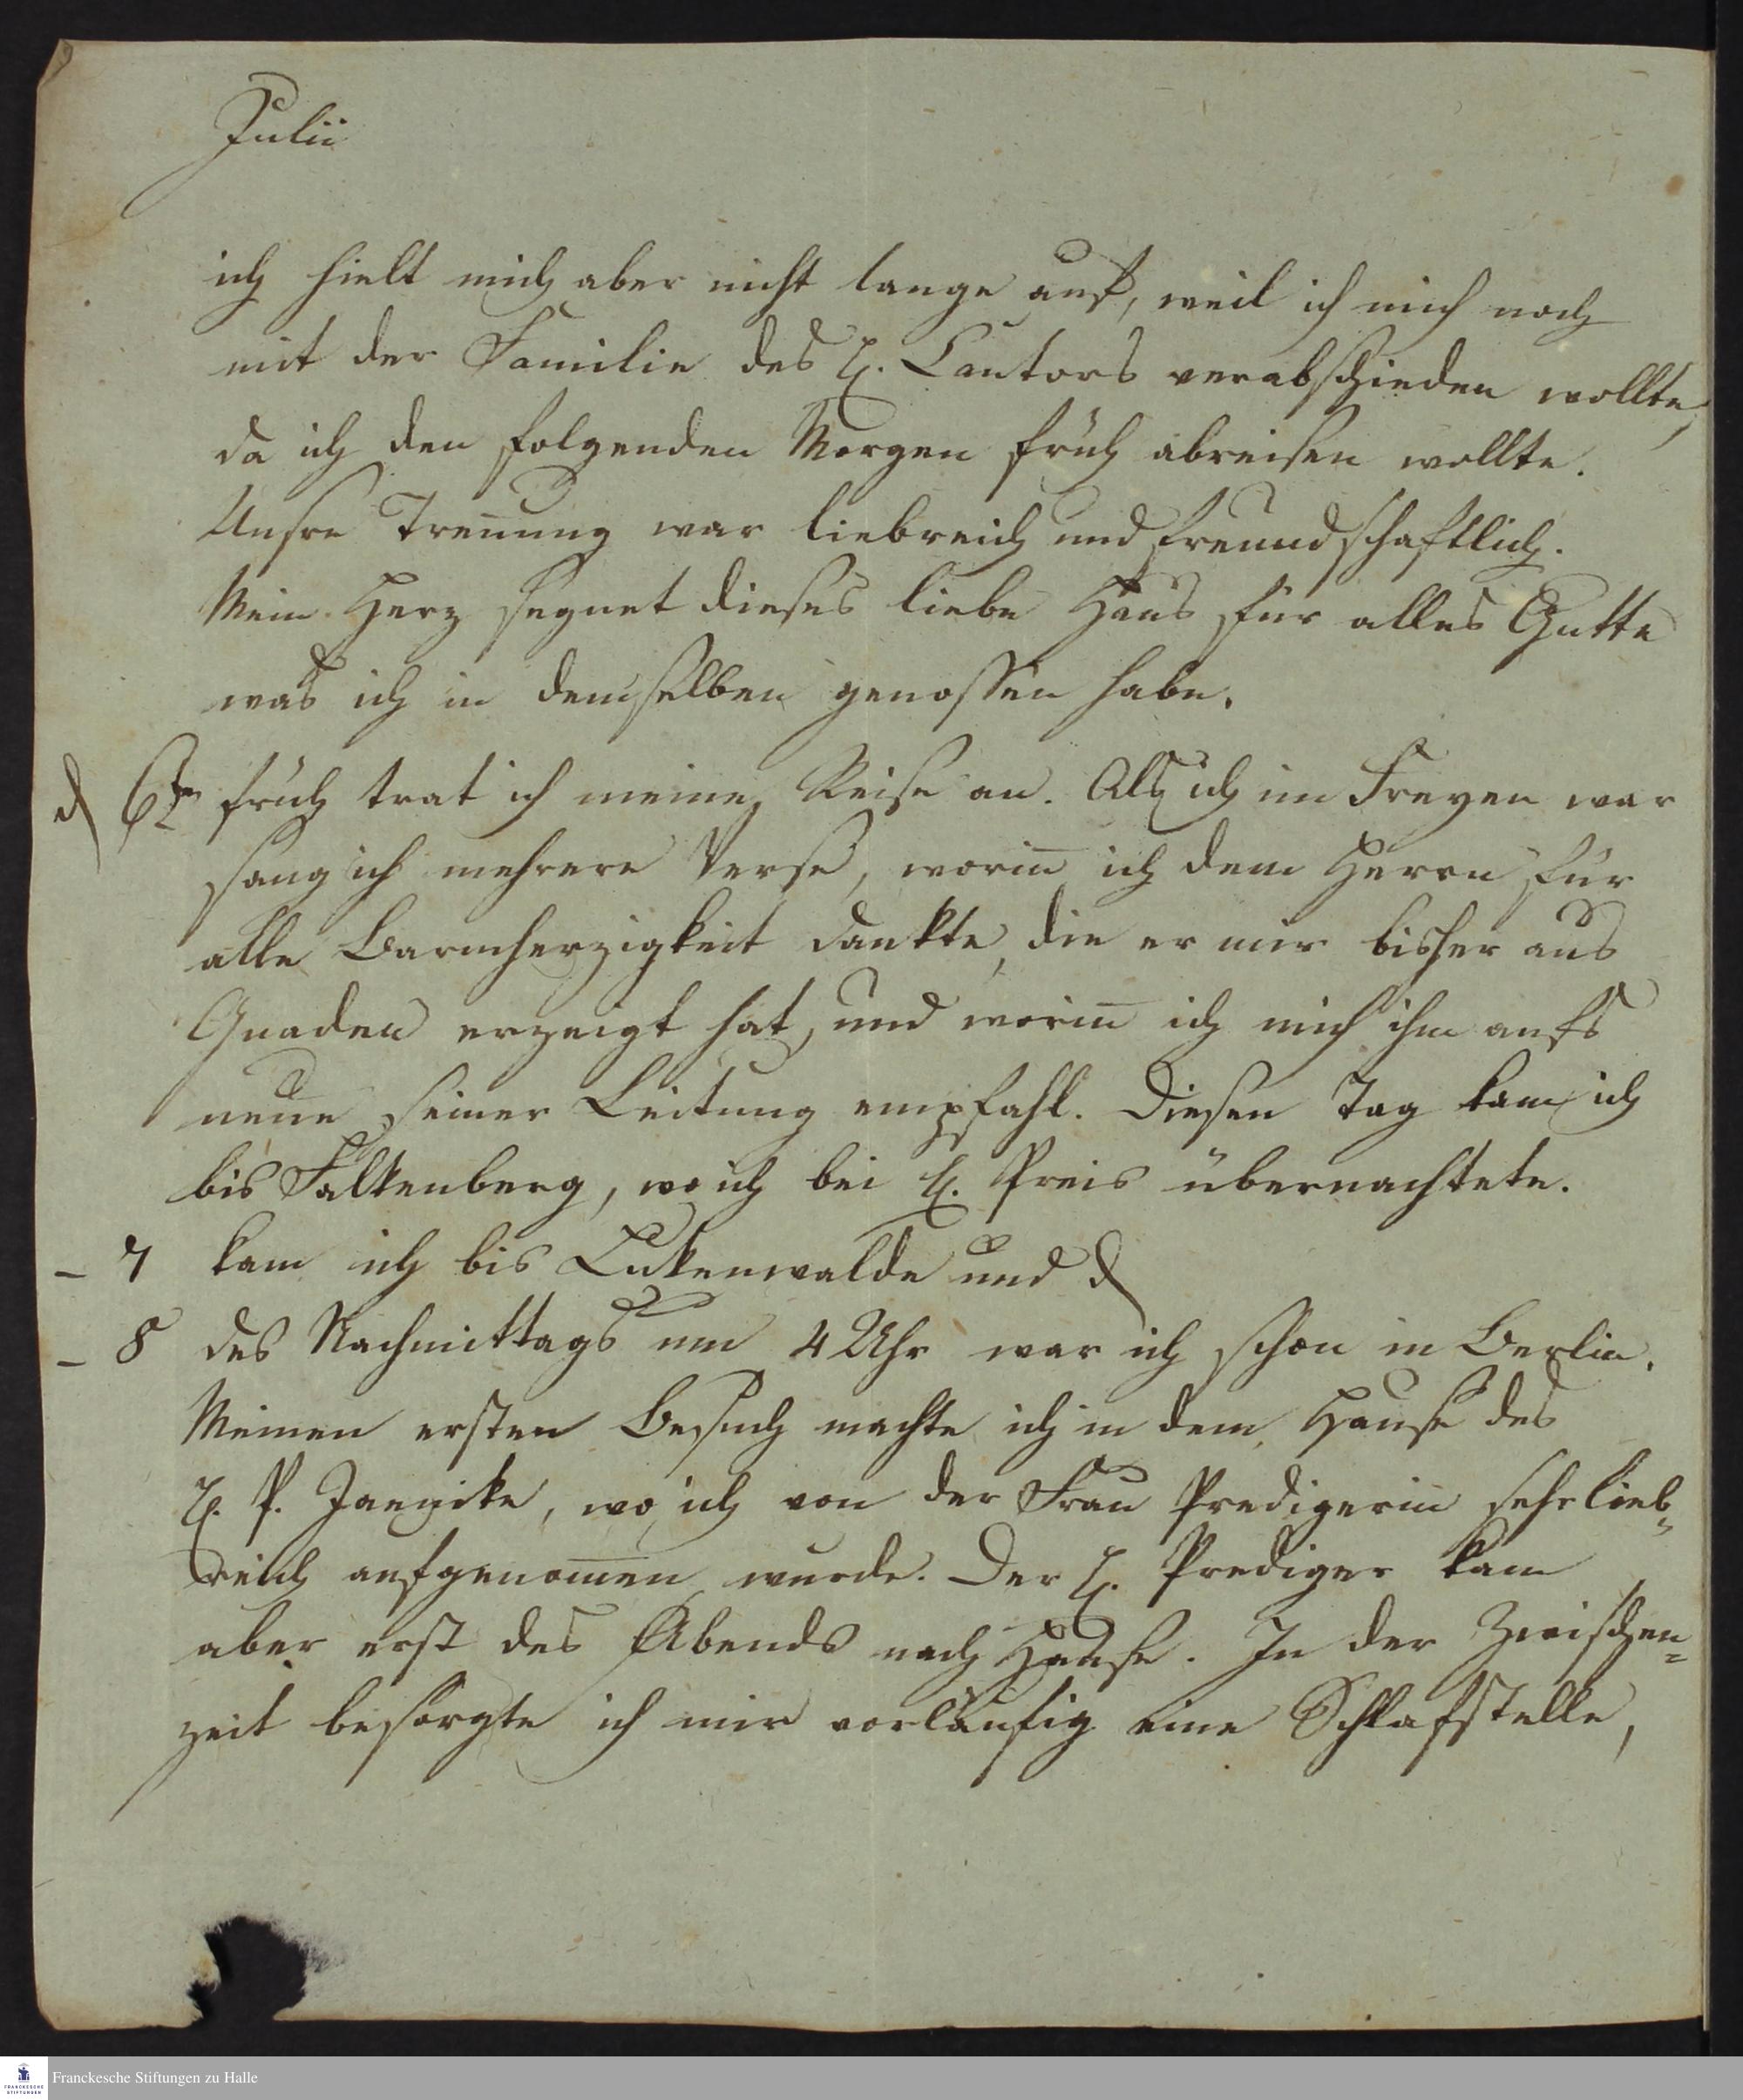 Julii
ich hielt mich aber nicht lange auf, weil ich mich noch
mit der Familie des H. Cantors verabschieden wollte,
da ich den folgenden Morgen früh abreisen wollte.
Unsre Treñung war liebreich und freundschaftlich.
Mein Herz segnet dieses liebe Haus für alles Gutte
was ich in demselben genossen habe.
d 6ten früh trat ich meine Reise an. Als ich im Freyen war
sang ich mehrere Verse, woriñ ich dem Herrn für
alle Barmherzigkeit dankte, die er mir bisher aus
Gnaden erzeigt hat, und woriñ ich mich ihm aufs
neue seiner Leitung empfahl. Diesen Tag kam ich
bis Falkenberg, wo ich bei H. Preis übernachtete.
– 7 kam ich bis Lukenwalde und d
– 8 des Nachmittags um 4 Uhr war ich schon in Berlin.
Meinen ersten Besuch machte ich in dem Hause des
H. P. Jaenike, wo ich von der Frau Predigerin sehr lieb=
reich aufgenom̄en wurde. Der H. Prediger kam
aber erst des Abends nach Hause. In der Zwischen=
zeit besorgte ich mir vorläufig eine Schlafstelle,
Franckesche Stiftungen zu Halle
FRANCKESCHE
STIFTUNGEN